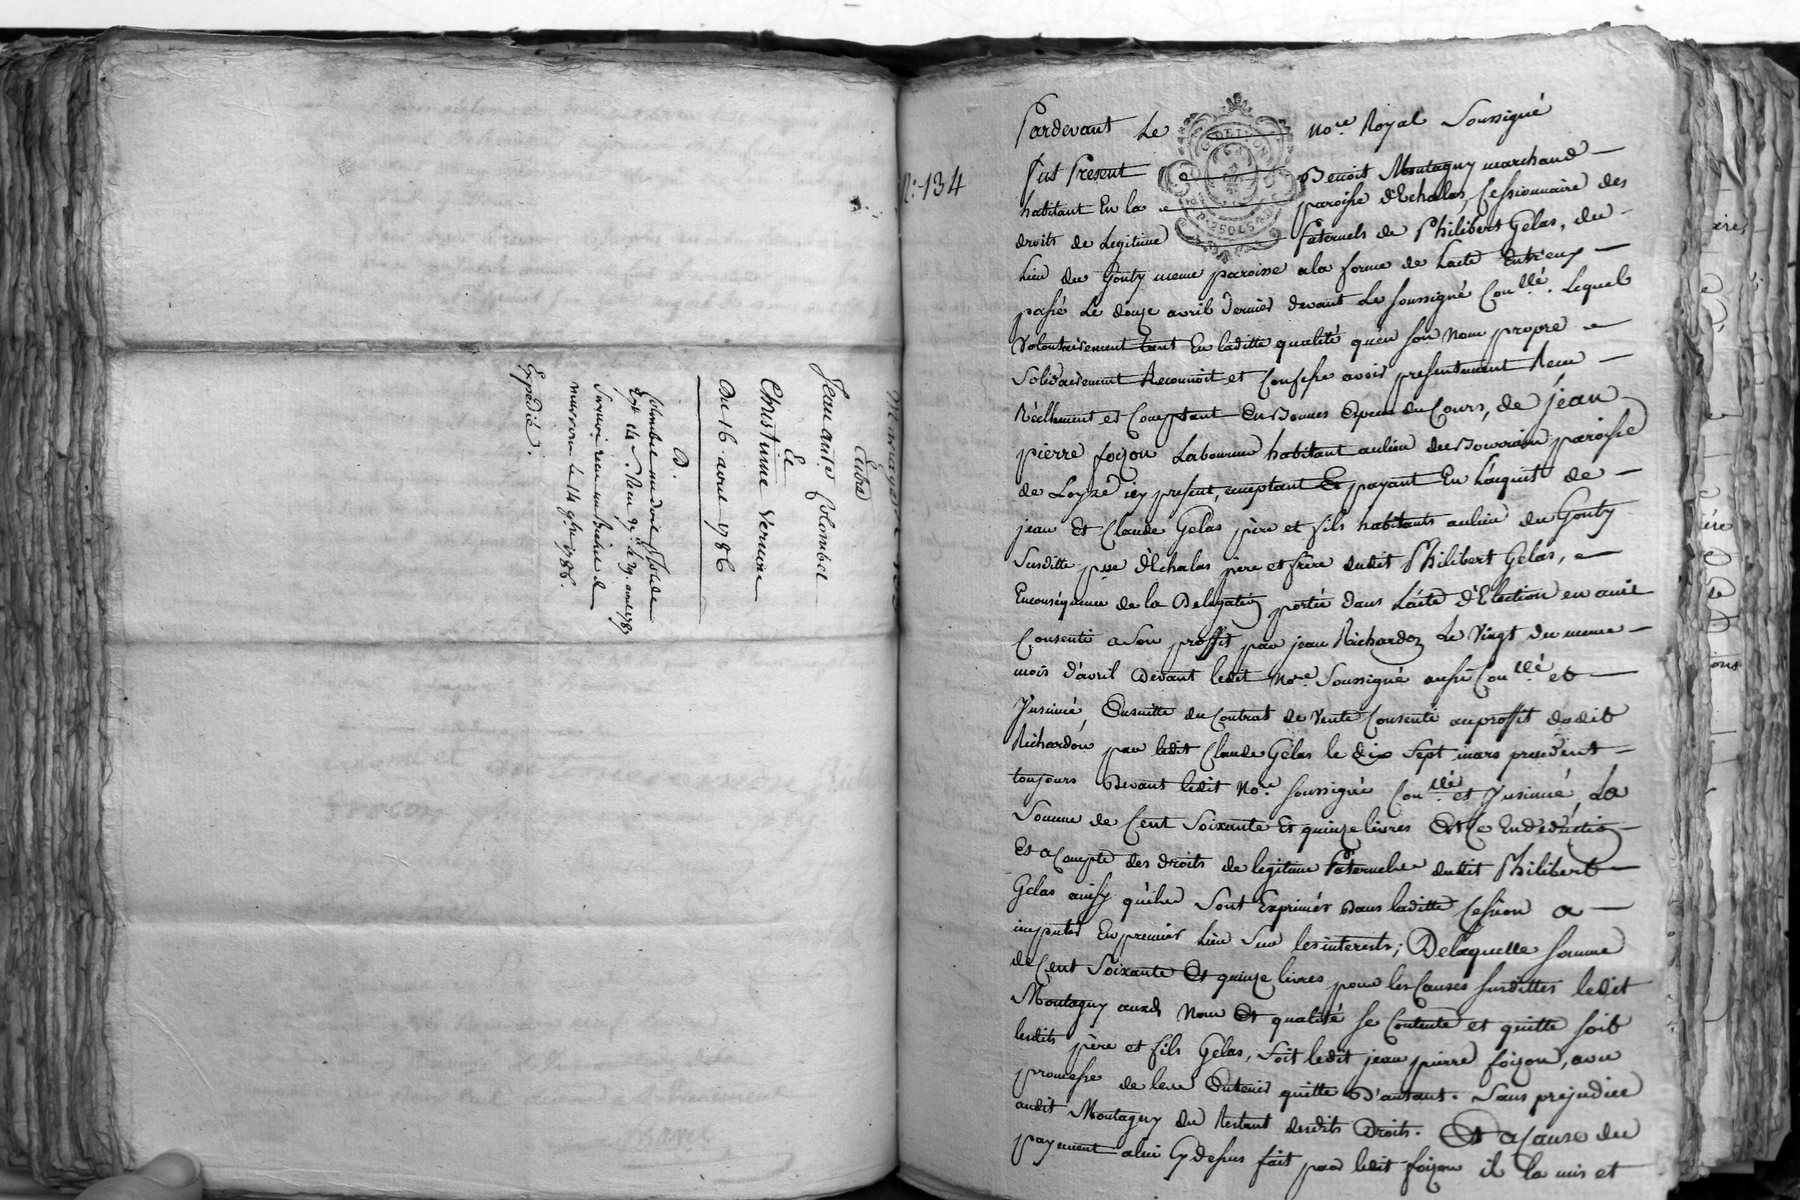 Mariage
Entre
Jean ant.e Colombet
Et
Christine Vernine
Du 16 avril 1786
D.
Expédié.
N.° 134
Pardevant Le No.re Royal Soussigné
fut Present Benoit Montagny marchand
habitant En la paroisse d'Echalas, Cessionnaire des
droits de Legitime Paternels de Philibert Gelas, du
Lieu du Gonty meme paroisse a la forme de Lacte Entr'eux
passé Le douze avril dernier devant Le soussigné Con.llé. Lequel
Volontairement tant En laditte qualité qu'en son Nom propre
Solidairement Reconnoit et Confesse avoir presentement Receu
Réellement et Comptant En Bonnes Especes du Cours, de jean
pierre foizon Laboureur habitant au lieu du Bourrin paroisse
de Loyre icy present, acceptant Et payant En L'acquit de
jean Et Claude Gelas père et fils habitants au lieu du Gonty
Susditte p.sse d'Echalas père et frère dudit Philibert Gelas,
Enconséquence de la Délégation portée dans L'acte d'Election en amit
Consenti a Son proffit par jean Richardon Le Vingt du meme
mois d'avril Devant ledit No.re Soussigné aussi Con.llé et
Jnsinué, Ensuitte du Contrat de Vente Consenti au proffit dudit
Richardon par ledit Claude Gelas le dix Sept mars precedent
toujours Devant ledit No.re soussigné Con.llé et Jnsinué, La
Somme de Cent Soixante Et quinze livres Et Ce En déduction
Et a Compte des droits de legitime Paternelle dudit Philibert
Gelas ainsy qu'elles Sont Exprimés Dans laditte Cession a
imputer En premier Lieu Sur les interests; De laquelle somme
de Cent Soixante Et quinze livres pour les Causes susdittes ledit
Montagny auxd. Nom Et qualité se Contente et quitte soit
lesdits père et fils Gelas, soit ledit jean pierre foizon, avec
promesse de leur Entenir quitte D'autant. Sans prejudice
audit Montagny du Restant desdits Droits. Et a Cause du
payement a lui Cy dessus fait par ledit foizon il la mis et